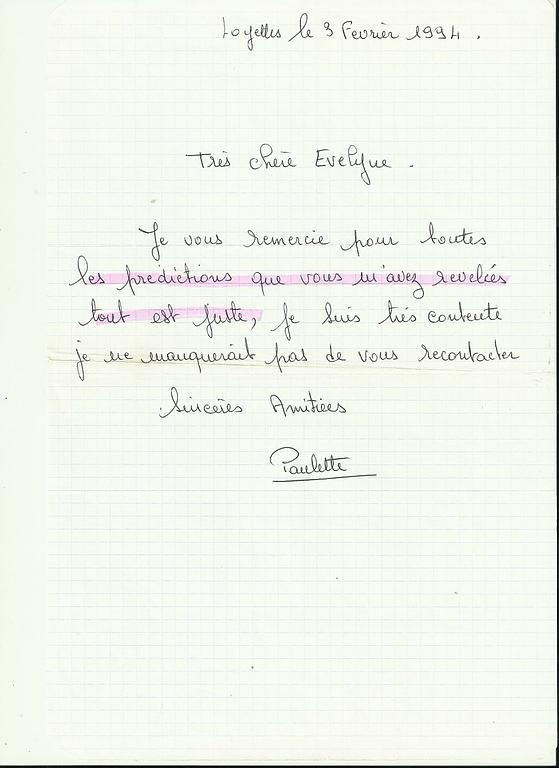 Loyettes le 3 Fevrier 1994.
Très chère Evelyne.
Je vous remercie pour toutes
les predictions que vous m'avez revelées
tout est juste, je suis très contente
je ne manquerait pas de vous recontacter
Sincères Amitiées
Paulette